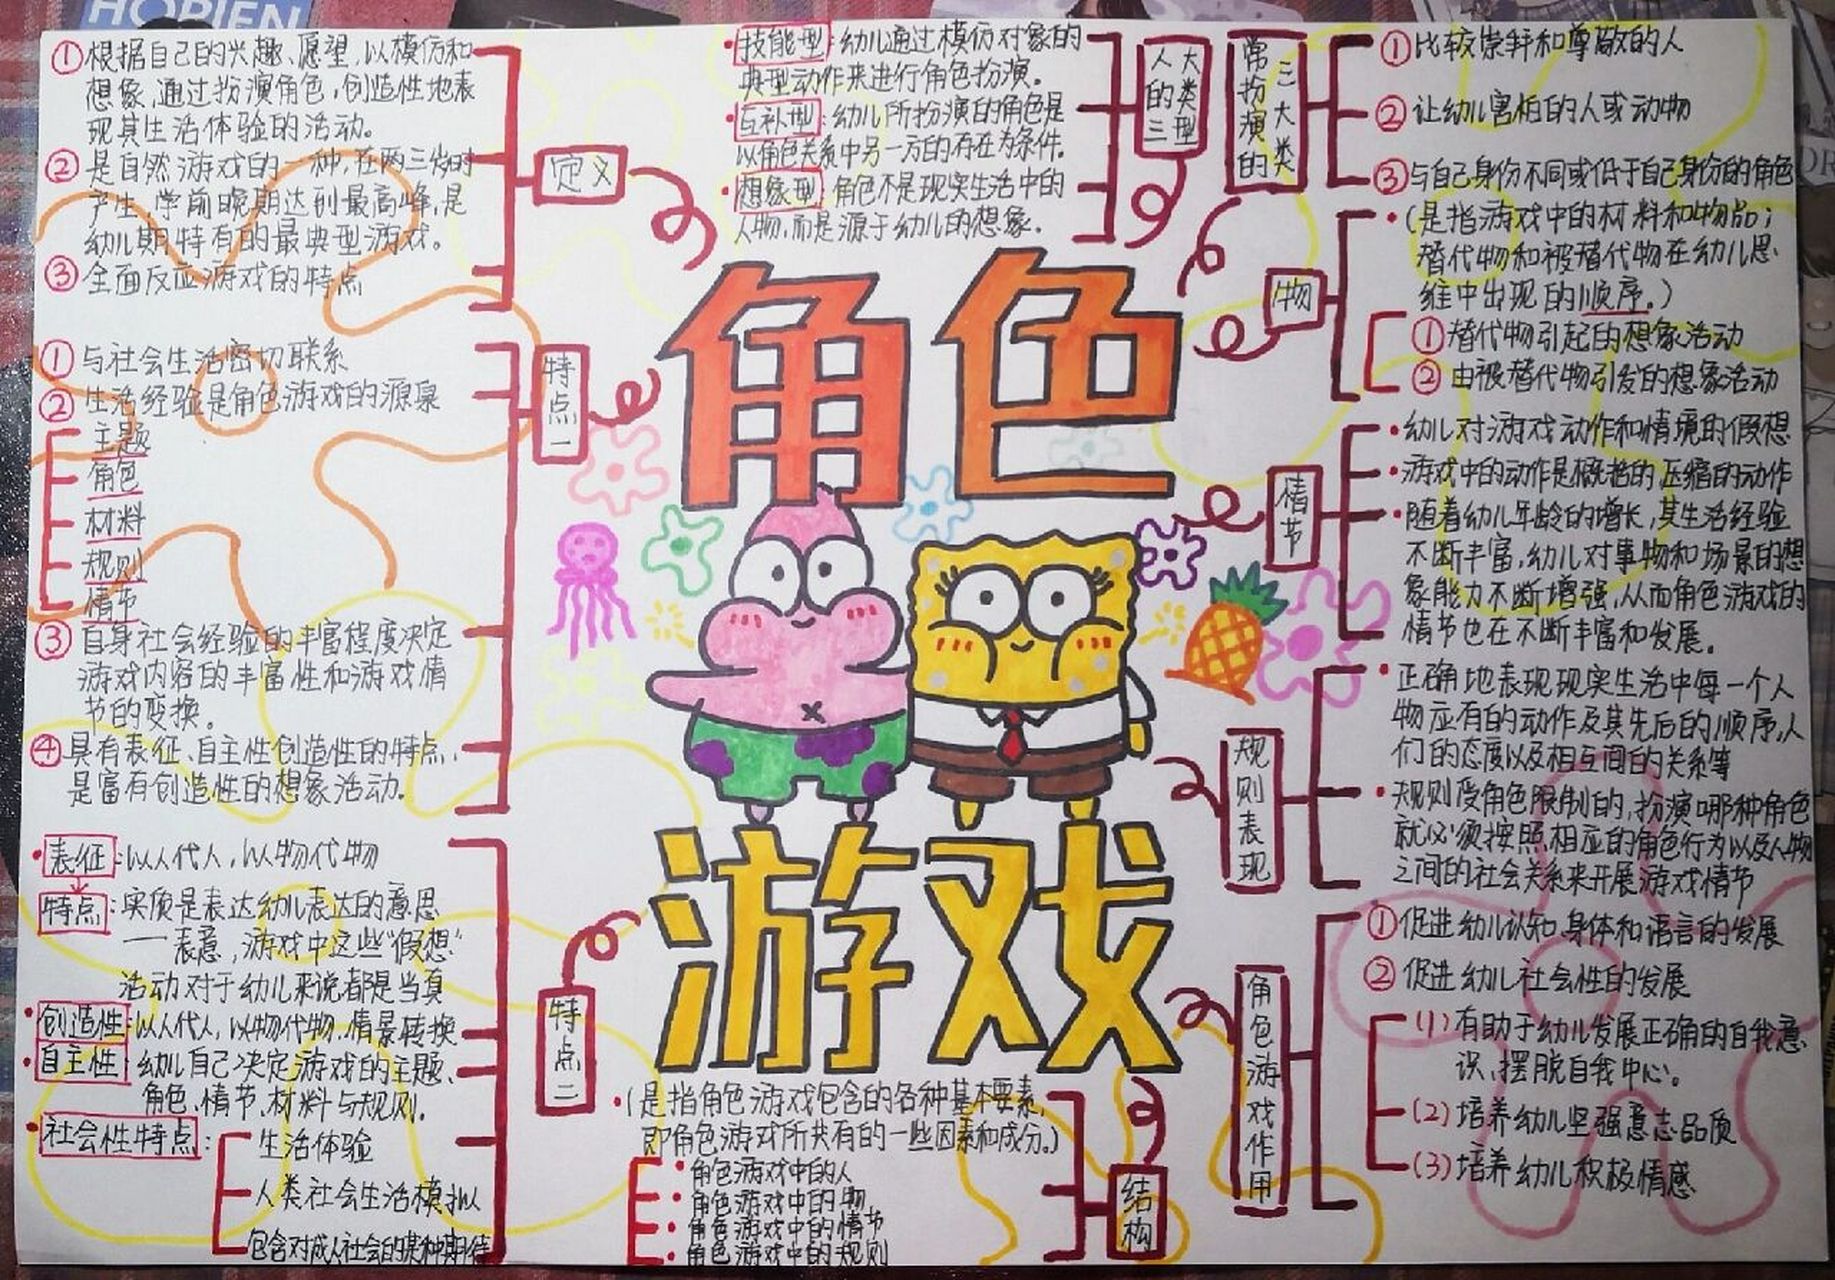 HOPIEN
①根据自己的兴趣、愿望,以模仿和
想象,通过扮演角色,创造性地表
现其生活体验的活动。
②是自然游戏的一种,在两三岁时
产生,学前晚期达到最高峰,是
幼儿期特有的最典型游戏。
③全面反应游戏的特点
定义
①与社会生活密切联系
②生活经验是角色游戏的源泉
主题
角色
材料
规则
情节
③自身社会经验的丰富程度决定
游戏内容的丰富性和游戏情
节的变换。
④具有表征、自主性创造性的特点,
是富有创造性的想象活动.
特点一
·表征:以人代人,以物代物
特点:实质是表达幼儿表达的意思
一表意,游戏中这些“假想”
活动对于幼儿来说都是当真
·创造性:以人代人,以物代物.情景转换
·自主性:幼儿自己决定游戏的主题、
角色、情节、材料与规则.
·社会性特点:
生活体验
人类社会生活模拟
包含对成人社会的某种期待
特点二
·技能型:幼儿通过模仿对象的
典型动作来进行角色扮演.
·互补型:幼儿所扮演的角色是
以角色关系中另一方的存在为条件.
·想象型:角色不是现实生活中的
人物,而是源于幼儿的想象.
人的三
大类型
常扮演的
三大类
①比较崇拜和尊敬的人
②让幼儿害怕的人或动物
③与自己身份不同或低于自己身份的角色
角色
游戏
物
·(是指游戏中的材料和物品;
替代物和被替代物在幼儿思
维中出现的顺序。)
①替代物引起的想象活动
②由被替代物引发的想象活动
情节
·幼儿对游戏动作和情境的假想
·游戏中的动作是概括的压缩的动作
·随着幼儿年龄的增长,其生活经验
不断丰富,幼儿对事物和场景的想
象能力不断增强,从而角色游戏的
情节也在不断丰富和发展.
规则表现
·正确地表现现实生活中每一个人
物应有的动作及其先后的顺序,人
们的态度以及相互间的关系等
·规则受角色限制的,扮演哪种角色
就必须按照相应的角色行为以及人物
之间的社会关系来开展游戏情节
角色游戏作用
①促进幼儿认知、身体和语言的发展
②促进幼儿社会性的发展
(1)有助于幼儿发展正确的自我意
识、摆脱自我中心。
(2)培养幼儿坚强意志品质
(3)培养幼儿积极情感
·(是指角色游戏包含的各种基本要素,
即角色游戏所共有的一些因素和成分。)
·角色游戏中的人
·角色游戏中的物
·角色游戏中的情节
·角色游戏中的规则
结构